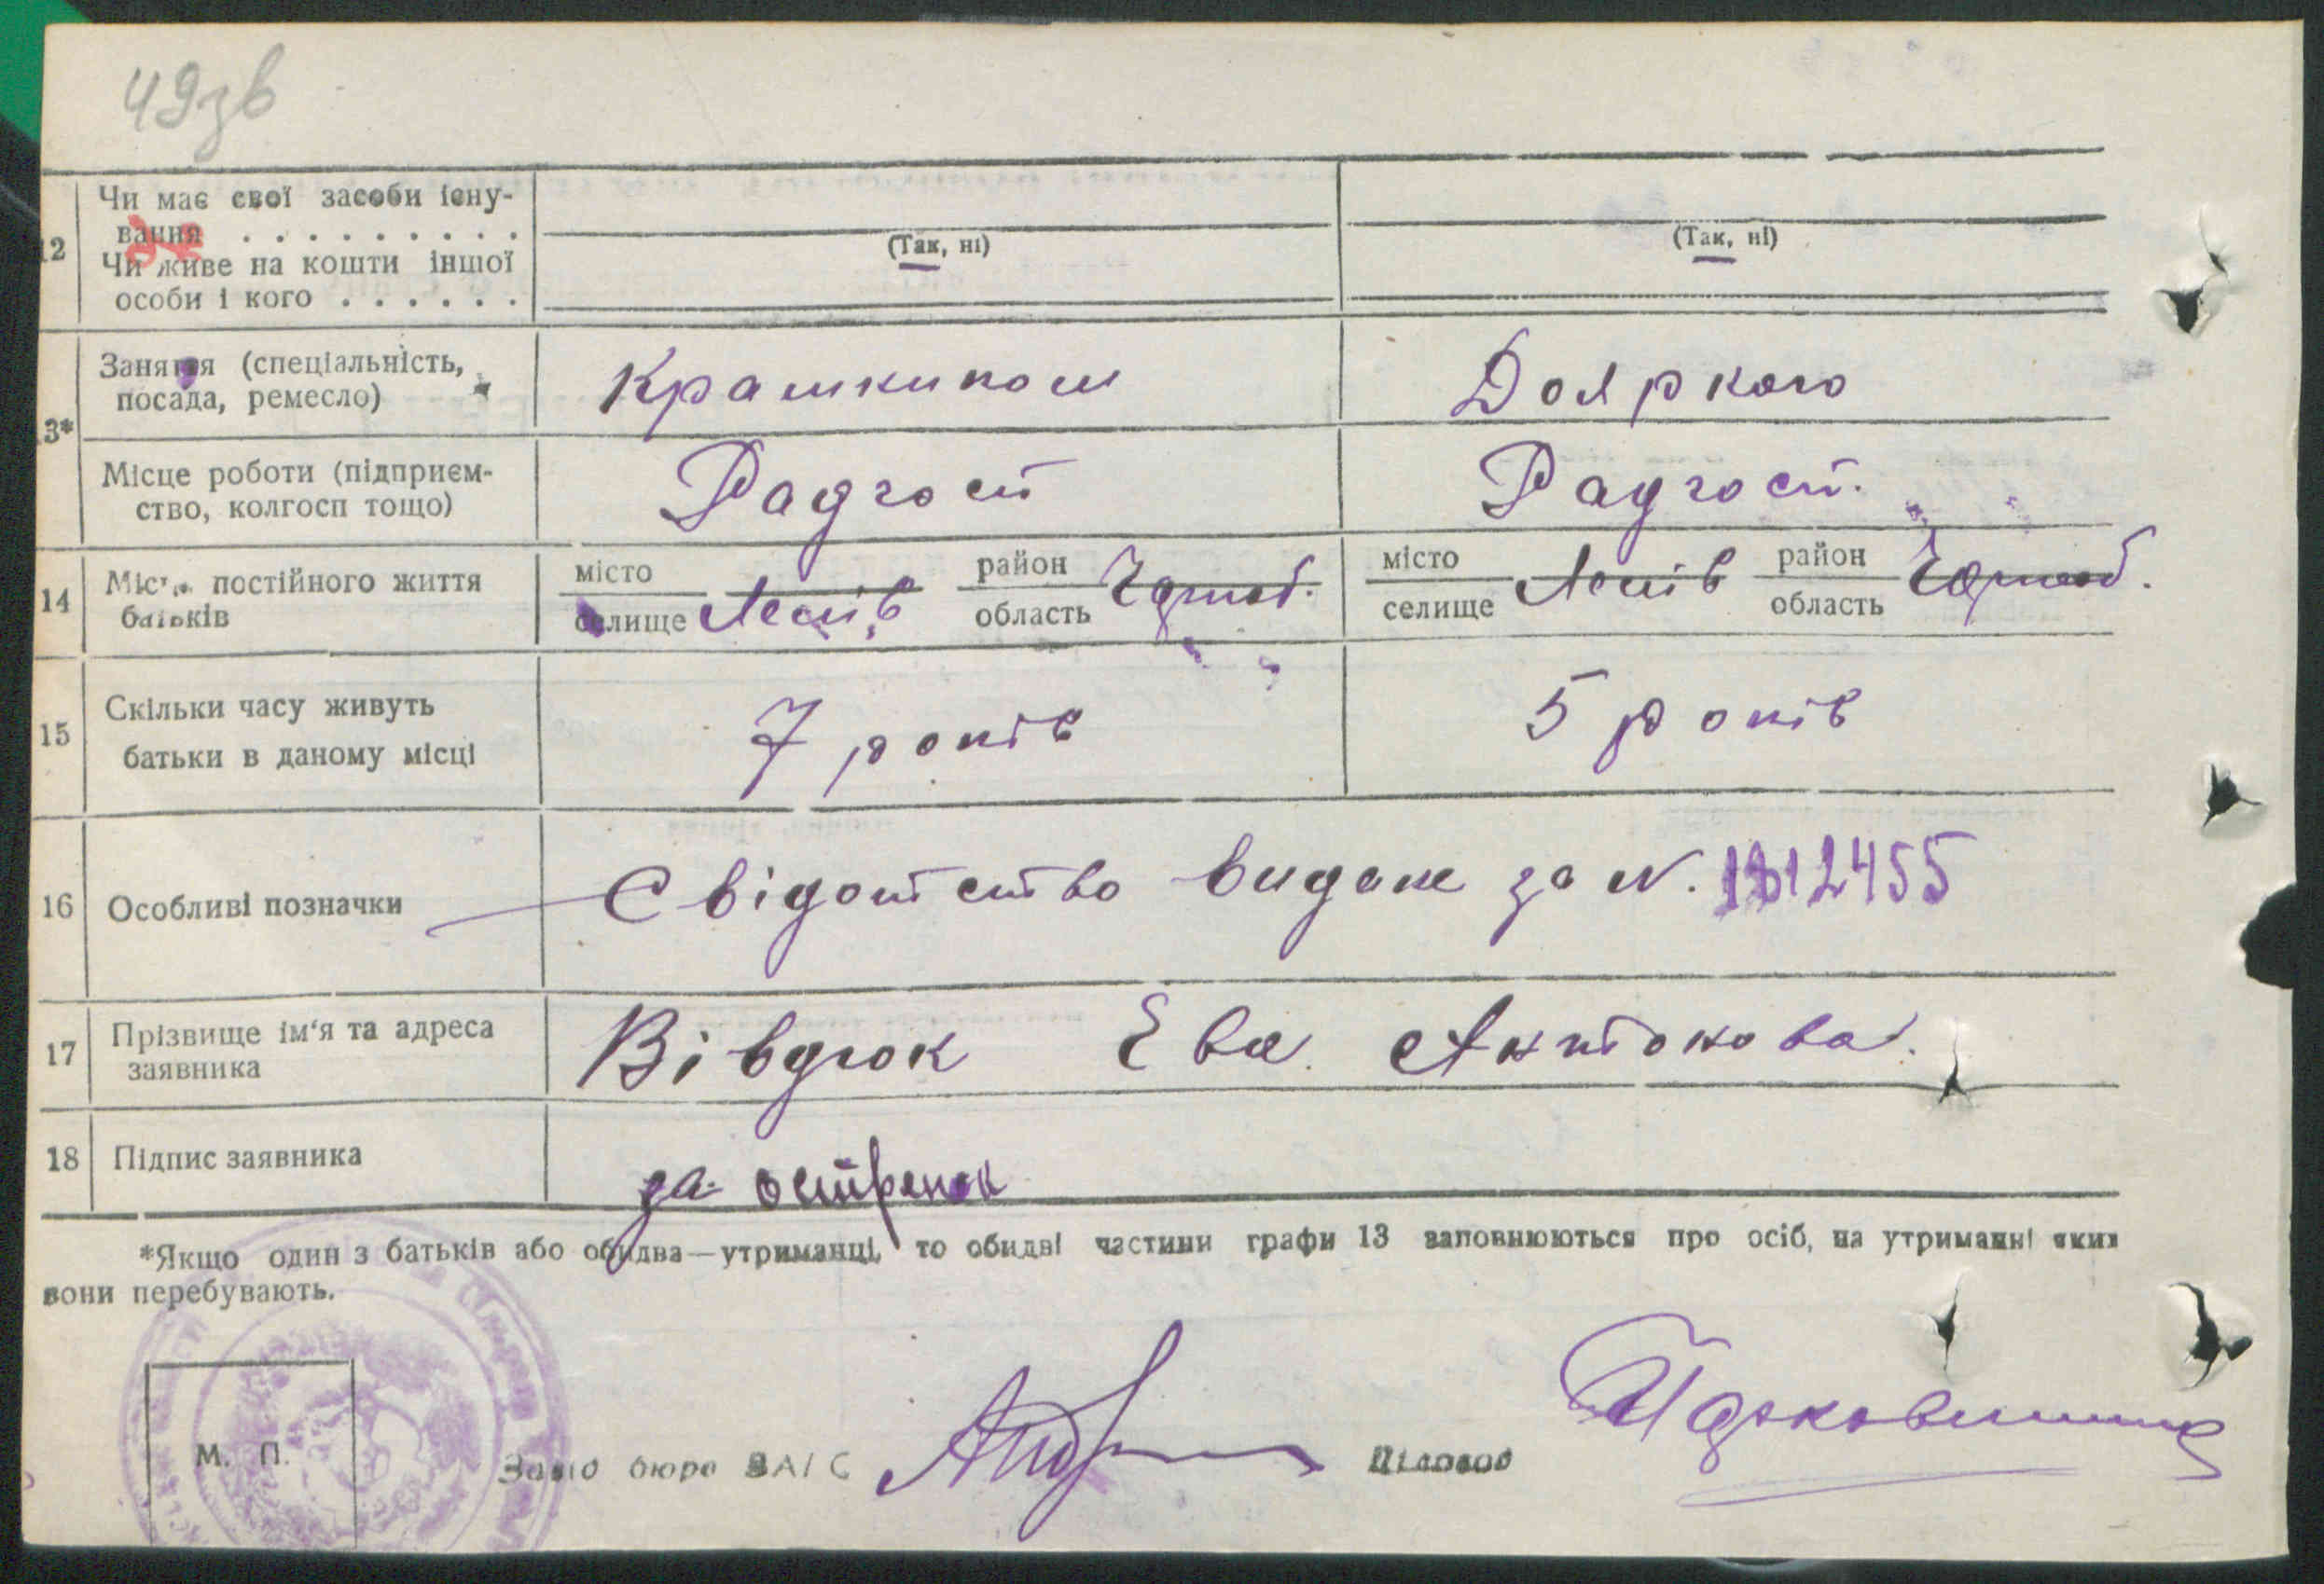 49зв
12 Чи має свої засоби існу-
вання . . . . . . . . .
(Так, ні) (Так, ні)
Чи живе на кошти іншої
особи і кого . . . . . .
3* Заняття (спеціальність,
посада, ремесло)
Дояркою
Місце роботи (підприєм-
ство, колгосп тощо)
Радгосп Радгосп.
14 Місце постійного життя
батьків
місто район місто район
селище область селище область
15 Скільки часу живуть
батьки в даному місці
7 років 5 років
16 Особливі позначки Свідотство видане за N. 1812455
17 Прізвище ім'я та адреса
заявника
Вівдюк Ева Антонова.
18 Підпис заявника
за
*Якщо один з батьків або обидва—утриманці, то обидві частини графи 13 заповнюються про осіб, на утриманні яких
вони перебувають.
М. П.
Завід бюро ЗАГС Діловод